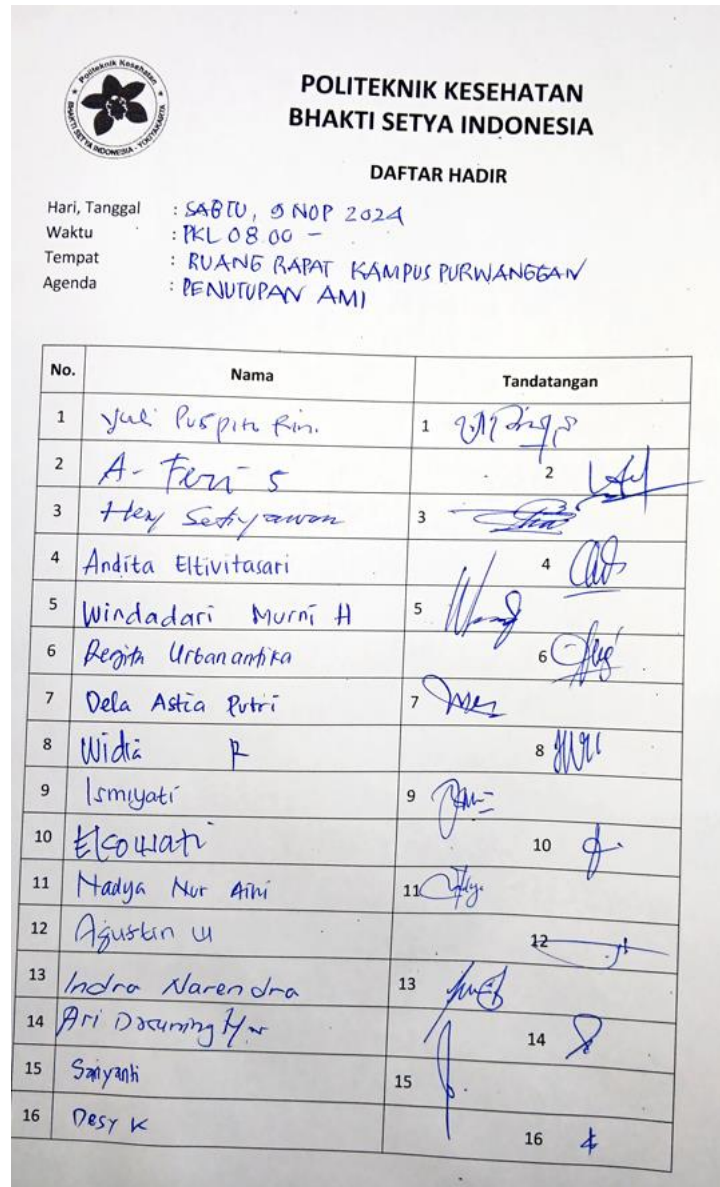 Politeknik Kesehatan
BHAKTI SETYA INDONESIA - YOGYAKARTA
POLITEKNIK KESEHATAN
BHAKTI SETYA INDONESIA
DAFTAR HADIR
Hari, Tanggal : SABTU, 9 NOP 2024
Waktu : PKL 08.00 -
Tempat : RUANG RAPAT KAMPUS PURWANGGAN
Agenda : PENUTUPAN AMI
No. Nama Tandatangan
1 Yuli Puspita Rini. 1
2 A. Feri S 2
3 Hery Setiyawan 3
4 Andita Eltivitasari 4
5 Windadari Murni H 5
6 Regita Urbanantika 6
7 Dela Astia Putri 7
8 Widia R 8
9 Ismiyati 9
10 10
11 Nadya Nur Aini 11
12 Agustin W 12
13 Indra Narendra 13
14 Ari 14
15 Sariyanti 15
16 Desy K 16